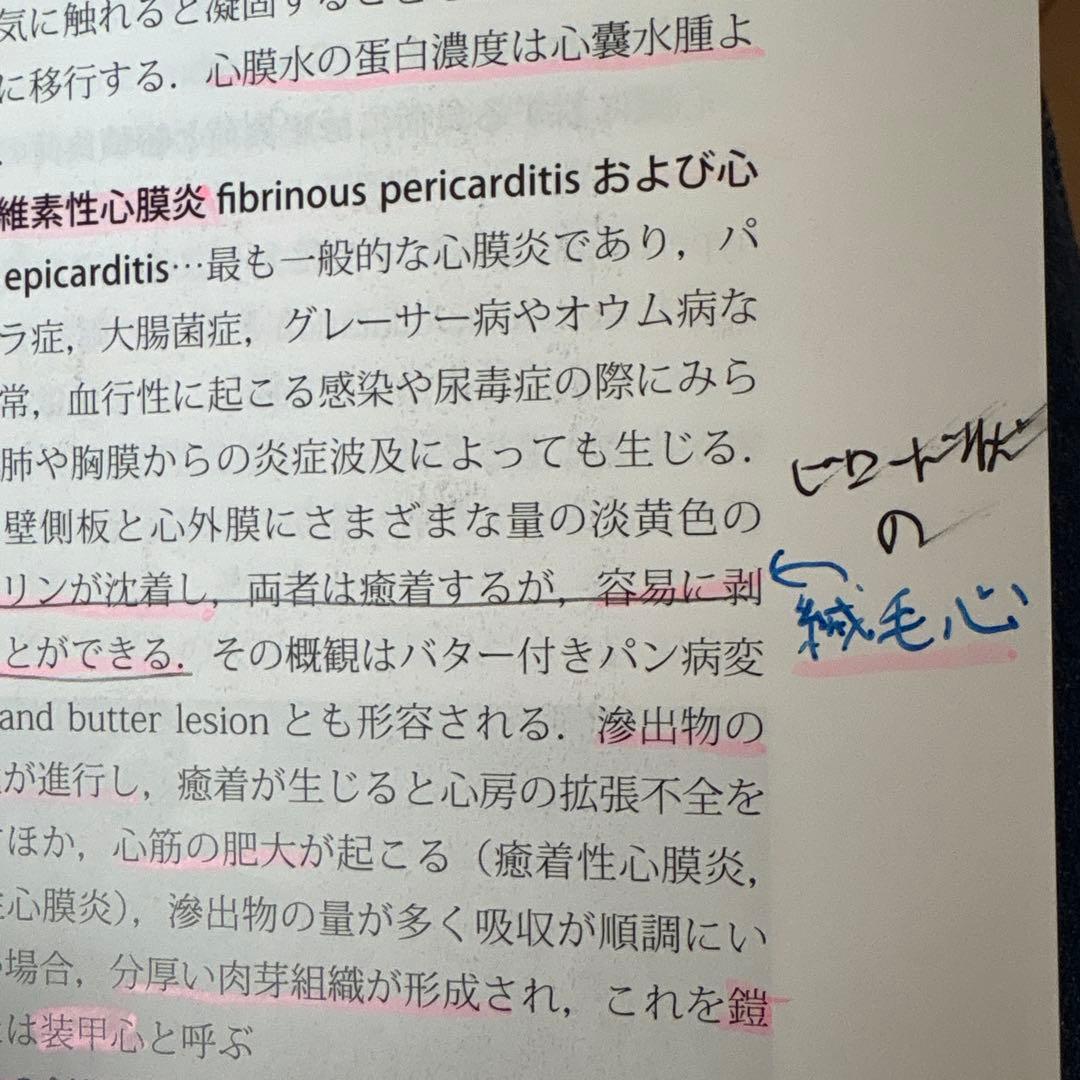 気に触れると凝固すること
に移行する．心膜水の蛋白濃度は心嚢水腫よ
維素性心膜炎 fibrinous pericarditis および心
epicarditis…最も一般的な心膜炎であり，パ
ラ症，大腸菌症，グレーサー病やオウム病な
常，血行性に起こる感染や尿毒症の際にみら
肺や胸膜からの炎症波及によっても生じる．
壁側板と心外膜にさまざまな量の淡黄色の
リンが沈着し，両者は癒着するが，容易に剥
とができる．その概観はバター付きパン病変
and butter lesion とも形容される．滲出物の
が進行し，癒着が生じると心房の拡張不全を
ほか，心筋の肥大が起こる（癒着性心膜炎，
心膜炎），滲出物の量が多く吸収が順調にい
場合，分厚い肉芽組織が形成され，これを鎧
は装甲心と呼ぶ
ビロード状
の
絨毛心